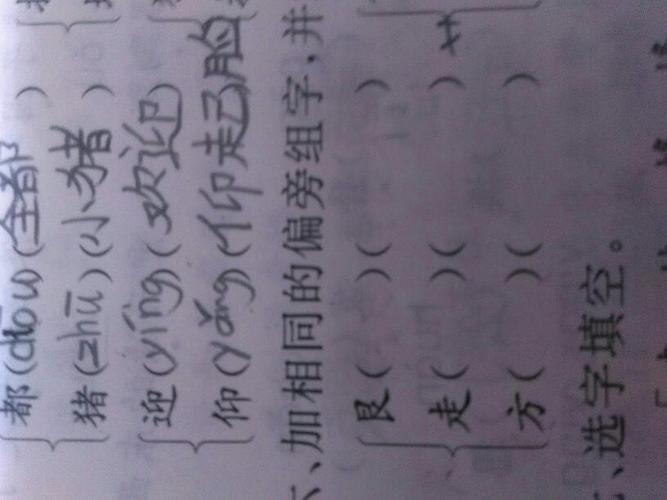 都(dōu)(全都)
猪(zhū)(小猪)
迎(yíng)(欢迎)
仰(yǎng)(仰起脸)
六、加相同的偏旁组字,并
艮( )( )
走( )( )
方( )( )
、选字填空。